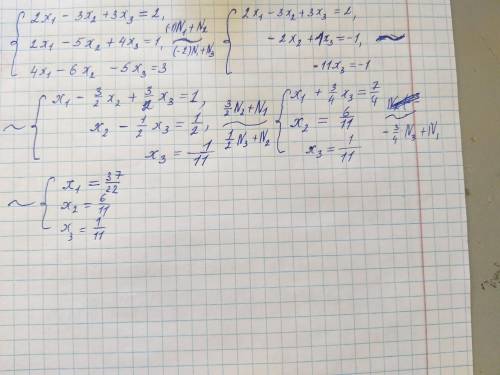 2x₁ - 3x₂ + 3x₃ = 2,
2x₁ - 5x₂ + 4x₃ = 1,
4x₁ - 6x₂ - 5x₃ = 3
(-1)N₁ + N₂
~
(-2)N₁ + N₃
2x₁ - 3x₂ + 3x₃ = 2,
- 2x₂ + 1x₃ = -1,
-11x₃ = -1
~
~ x₁ - 3/2 x₂ + 3/2 x₃ = 1,
x₂ - 1/2 x₃ = 1/2,
x₃ = 1/11
3/2 N₂ + N₁
~
1/2 N₃ + N₂
x₁ + 3/4 x₃ = 7/4
x₂ = 6/11
x₃ = 1/11
~
- 3/4 N₃ + N₁
~ x₁ = 37/22
x₂ = 6/11
x₃ = 1/11